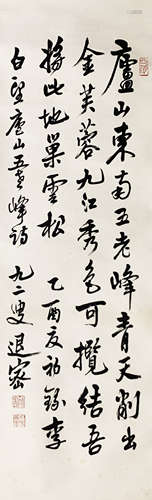 廬山東南五老峰青天削出
金芙蓉九江秀色可攬結吾
將此地巢雲松 乙酉夏初錄李
白望廬山五老峰詩
九二叟退密